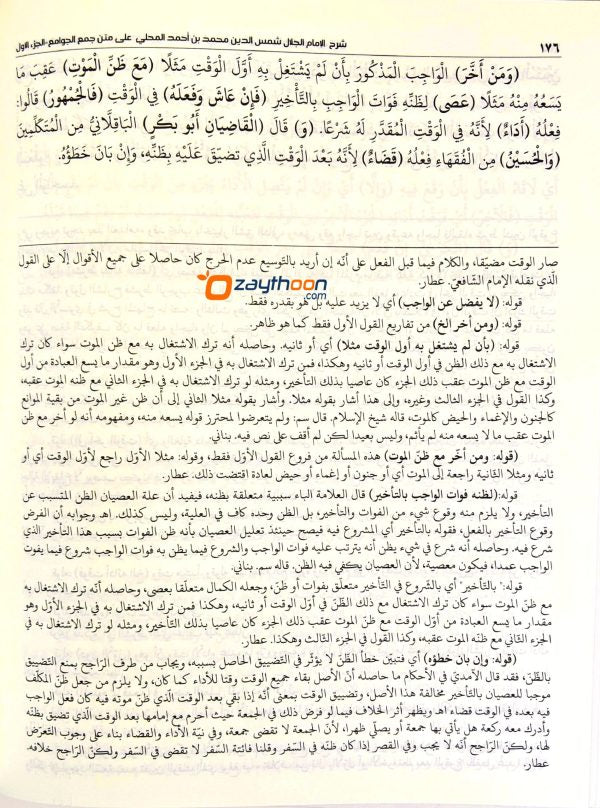 شرح الامام الجلال شمس الدين محمد بن أحمد المحلي على متن جمع الجوامع-الجزء الاول
١٧٦
(وَمَنْ أَخَّرَ) الْوَاجِبَ الْمَذْكُورَ بِأَنْ لَمْ يَشْتَغِلْ بِهِ أَوَّلَ الْوَقْتِ مَثَلًا (مَعَ ظَنِّ الْمَوْتِ) عَقِبَ مَا
يَسَعُهُ مِنْهُ مَثَلًا (عَصَى) لِظَنِّهِ فَوَاتَ الْوَاجِبِ بِالتَّأْخِيرِ (فَإِنْ عَاشَ وَفَعَلَهُ) فِي الْوَقْتِ (فَالْجُمْهُورُ) قَالُوا:
فِعْلُهُ (أَدَاءٌ) لِأَنَّهُ فِي الْوَقْتِ الْمُقَدَّرِ لَهُ شَرْعًا. (وَ) قَالَ (الْقَاضِيَانِ أَبُو بَكْرٍ) الْبَاقِلَّانِيُّ مِنَ الْمُتَكَلِّمِينَ
(وَالْحُسَيْنُ) مِنَ الْفُقَهَاءِ فِعْلُهُ (قَضَاءٌ) لِأَنَّهُ بَعْدَ الْوَقْتِ الَّذِي تَضَيَّقَ عَلَيْهِ بِظَنِّهِ، وَإِنْ بَانَ خَطَؤُهُ.
صار الوقت مضيّقا، والكلام فيما قبل الفعل على أنّه إن أريد بالتوسيع عدم الحرج كان حاصلا على جميع الأقوال إلّا على القول
الّذي نقله الإمام الشّافعيّ. عطار.
zaythoon.com
قوله: (لا يفضل عن الواجب) أي لا يزيد عليه بل هو بقدره فقط.
قوله: (ومن أخر الخ) من تفاريع القول الأول فقط كما هو ظاهر.
قوله: (بأن لم يشتغل به أول الوقت مثلا) أي أو ثانيه. وحاصله أنه ترك الاشتغال به مع ظن الموت سواء كان ترك
الاشتغال به مع ذلك الظن في أول الوقت أو ثانيه وهكذا، فمن ترك الاشتغال به في الجزء الأول وهو مقدار ما يسع العبادة من أول
الوقت مع ظن الموت عقب ذلك الجزء كان عاصيا بذلك التأخير، ومثله لو ترك الاشتغال به في الجزء الثاني مع ظنه الموت عقبه،
وكذا القول في الجزء الثالث وغيره، وإلى هذا أشار بقوله مثلا. وأشار بقوله مثلا الثاني إلى أن ظن غير الموت من بقية الموانع
كالجنون والإغماء والحيض كالموت، قاله شيخ الإسلام. قال سم: ولم يتعرضوا لمحترز قوله يسعه منه، ومفهومه أنه لو أخر مع ظن
الموت عقب ما لا يسعه منه لم يأثم، وليس بعيدا لكن لم أقف على نص فيه. بناني.
(قوله: ومن أخّر مع ظنّ الموت) هذه المسألة من فروع القول الأوّل فقط، وقوله: مثلا الأوّل راجع لأوّل الوقت أي أو
ثانيه ومثلا الثّانية راجعة إلى الموت أي أو جنون أو إغماء أو حيض لعادة اقتضت ذلك. عطار.
قوله:(لظنه فوات الواجب بالتأخير) قال العلامة الباء سببية متعلقة بظنه، فيفيد أن علة العصيان الظن المتسبب عن
التأخير، ولا يلزم منه وقوع شيء من الفوات والتأخير، بل الظن وحده كاف في العلية، وليس كذلك. اهـ وجوابه أن الفرض
وقوع التأخير بالفعل، فقوله بالتأخير أي المشروع فيه فيصح حينئذ تعليل العصيان بأنه ظن الفوات بسبب هذا التأخير الذي
شرع فيه. وحاصله أنه شرع في شيء يظن أنه يترتب عليه فوات الواجب والشروع فيما يظن به فوات الواجب شروع فيما يفوت
الواجب عمدا، فيكون معصية، لأن العصيان يكفي فيه الظن. قاله سم. بناني.
قوله:" بالتأخير" أي بالشّروع في التأخير متعلّق بفوات أو ظنّ، وجعله الكمال متعلّقا بعصى، وحاصله أنّه ترك الاشتغال به
مع ظنّ الموت سواء كان ترك الاشتغال مع ذلك الظّنّ في أوّل الوقت أو ثانيه، وهكذا فمن ترك الاشتغال به في الجزء الأوّل وهو
مقدار ما يسع العبادة من أوّل الوقت مع ظنّ الموت عقب ذلك الجزء كان عاصيا بذلك التّأخير، ومثله لو ترك الاشتغال به في
الجزء الثّاني مع ظنّه الموت عقبه؛ وكذا القول في الجزء الثالث وهكذا. عطار.
(قوله: وإن بان خطؤه) أي فتبيّن خطأ الظّنّ لا يؤثّر في التّضييق الحاصل بسببه، ويجاب من طرف الرّاجح بمنع التّضييق
بالظّنّ، فقد قال الآمديّ في الأحكام ما حاصله أنّ الأصل بقاء جميع الوقت وقتا للأداء كما كان، ولا يلزم من جعل ظنّ المكلّف
موجبا للعصيان بالتأخير مخالفة هذا الأصل، وتضييق الوقت بمعنى أنّه إذا بقي بعد الوقت الّذي ظنّ موته فيه كان فعل الواجب
فيه بعده في الوقت قضاء اهـ ويظهر أثر الخلاف فيما لو فرض ذلك في الجمعة حيث أحرم مع إمامها بعد الوقت الّذي تضيق بظنّه
وأدرك معه ركعة هل يأتي بها جمعة أو يصلّي ظهرا، لأنّ الجمعة لا تقضى جمعة، وفي نيّة الأداء والقضاء بناء على وجوب التّعرّض
لها، ولكنّ الرّاجح أنّه لا يجب وفي القصر إذا كان ظنّه في السّفر وقلنا فائتة السّفر لا تقضى في السّفر ولكنّ الرّاجح خلافه.
عطار.